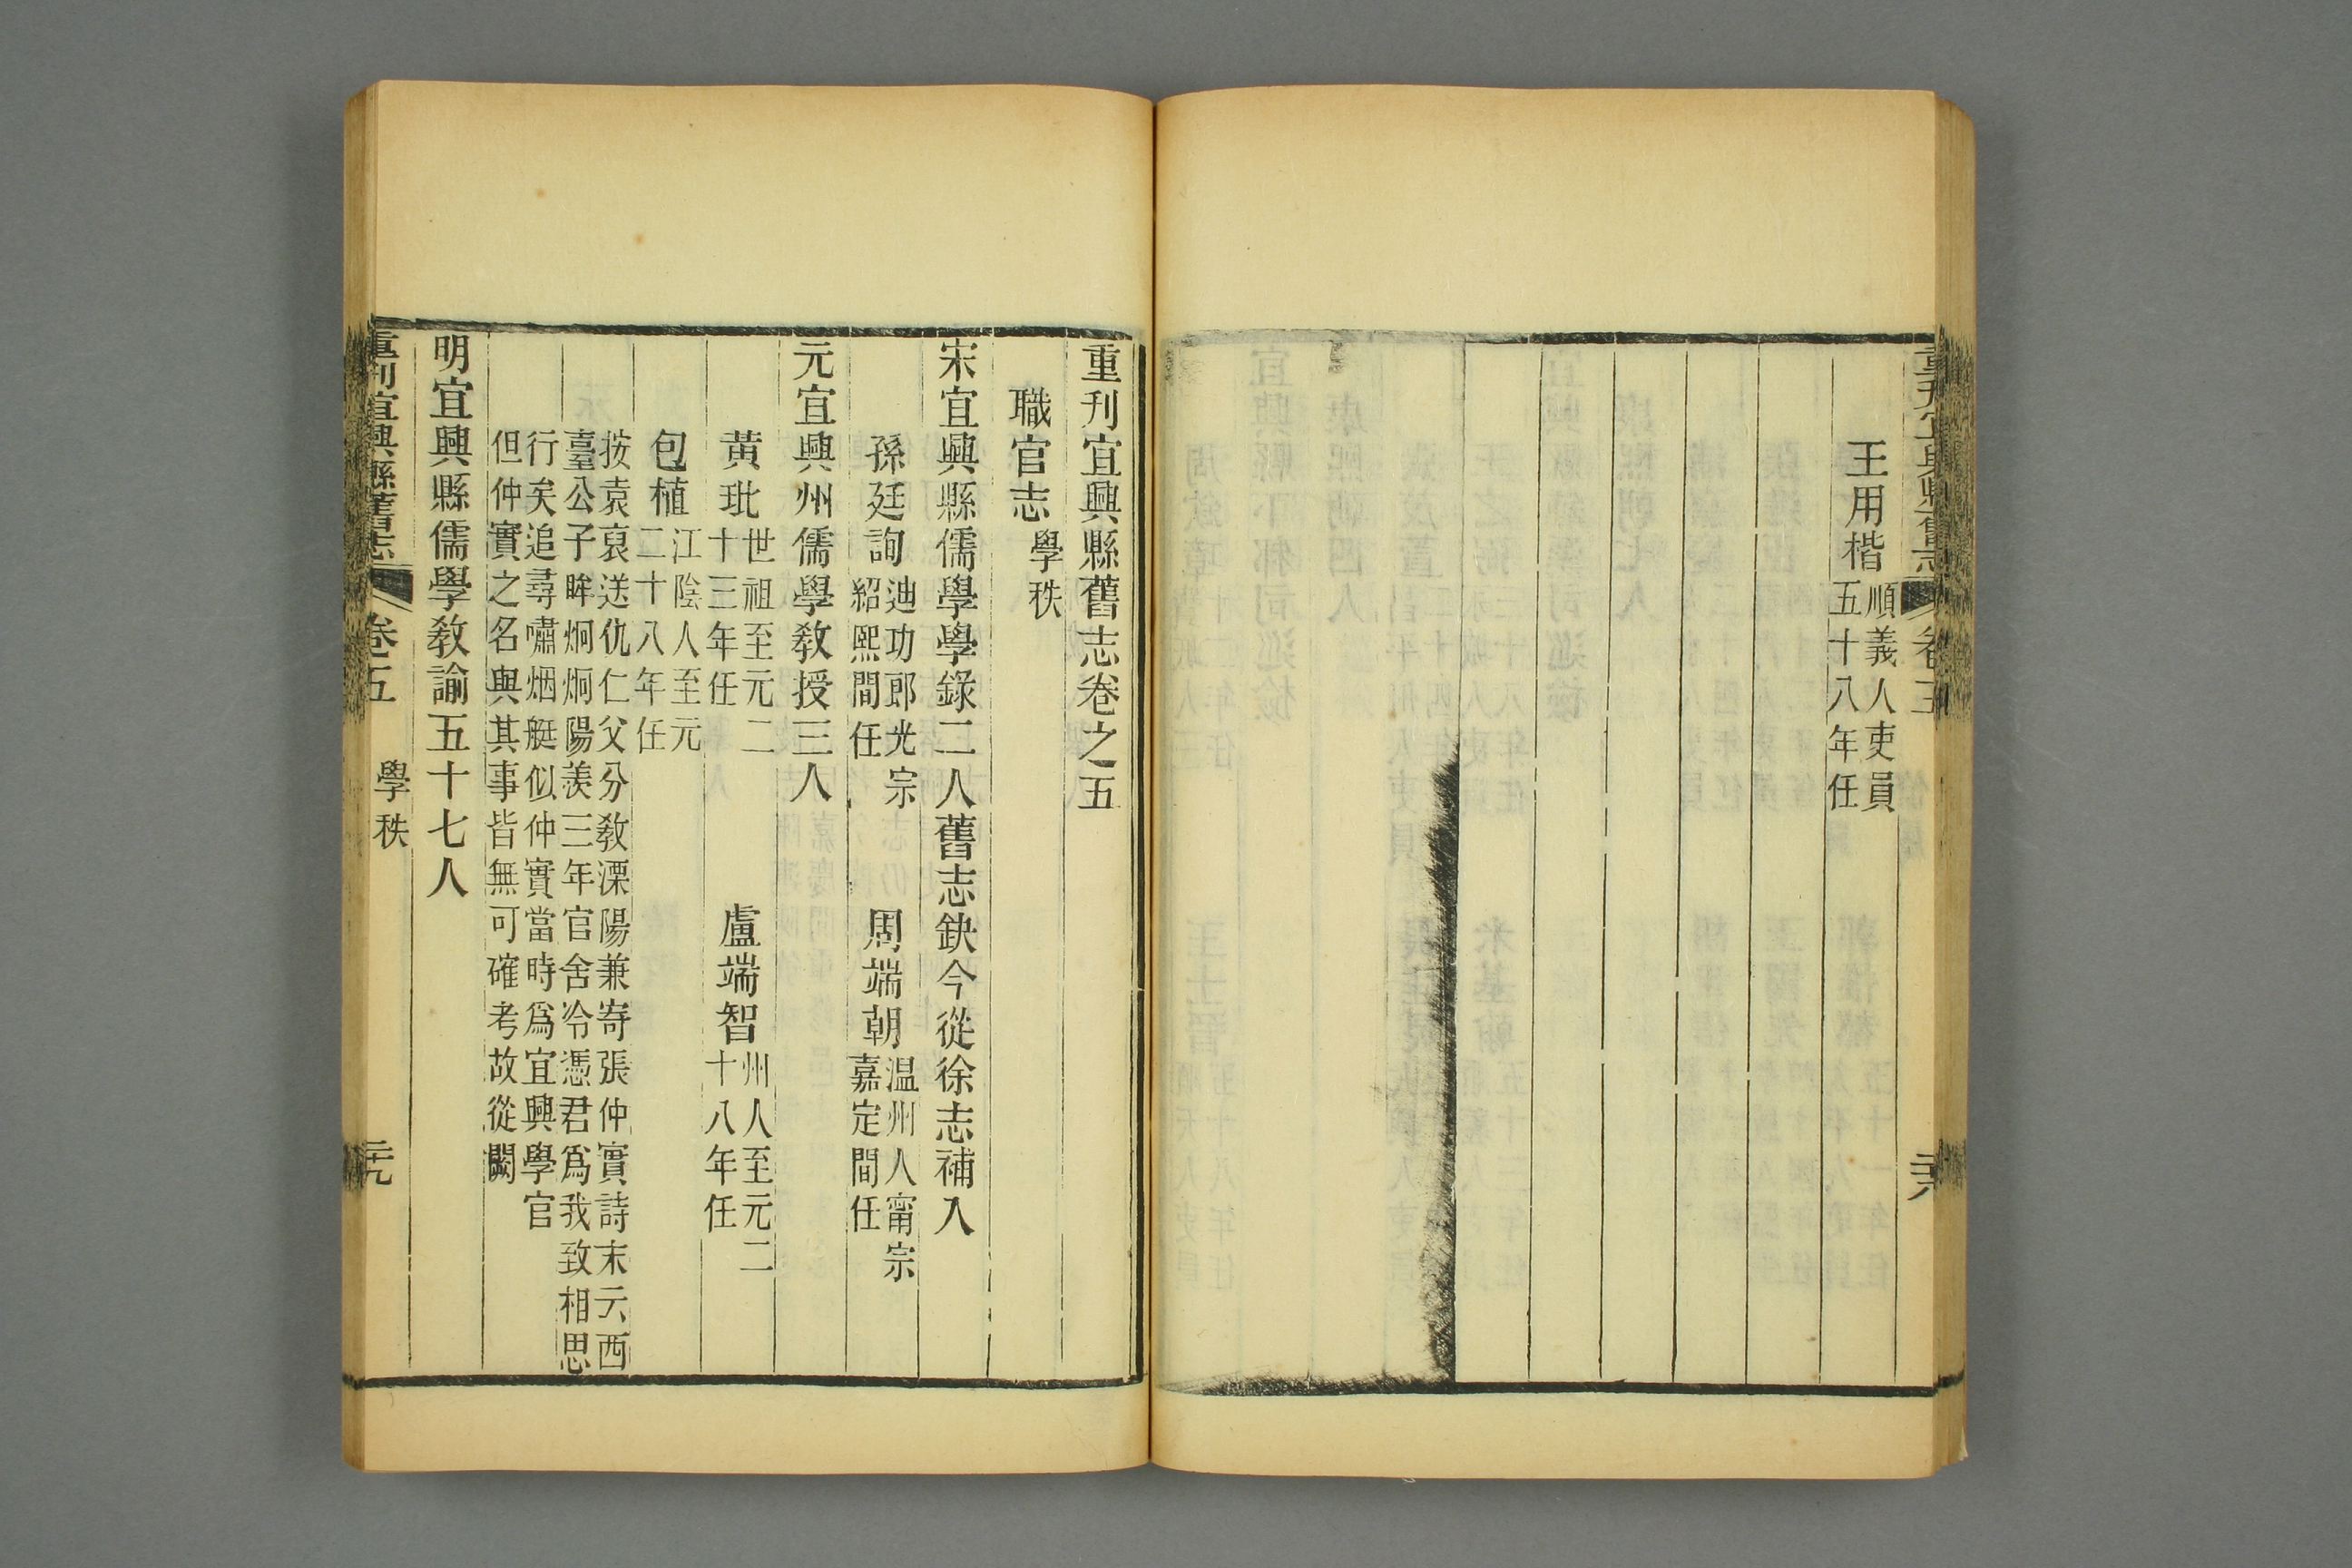 重刊宜興縣舊志
卷五
王用楷
順義人吏員
五十八年任
重刊宜興縣舊志卷之五
職官志
學秩
宋宜興縣儒學學錄二人舊志鈌今從徐志補入
孫廷詢
迪功郎光宗
紹熙間任
周端朝
温州人甯宗
嘉定間任
元宜興州儒學教授三人
黃玭
世祖至元二
十三年任
盧端智
州人至元二
十八年任
包植
江陰人至元
二十八年任
按袁裒送仇仁父分教溧陽兼寄張仲實詩末云西
臺公子眸炯炯陽羨三年官舍冷憑君爲我致相思
行矣追尋嘯烟艇似仲實當時爲宜興學官
但仲實之名與其事皆無可確考故從闕
明宜興縣儒學教諭五十七人
重刊宜興縣舊志
卷五
學秩